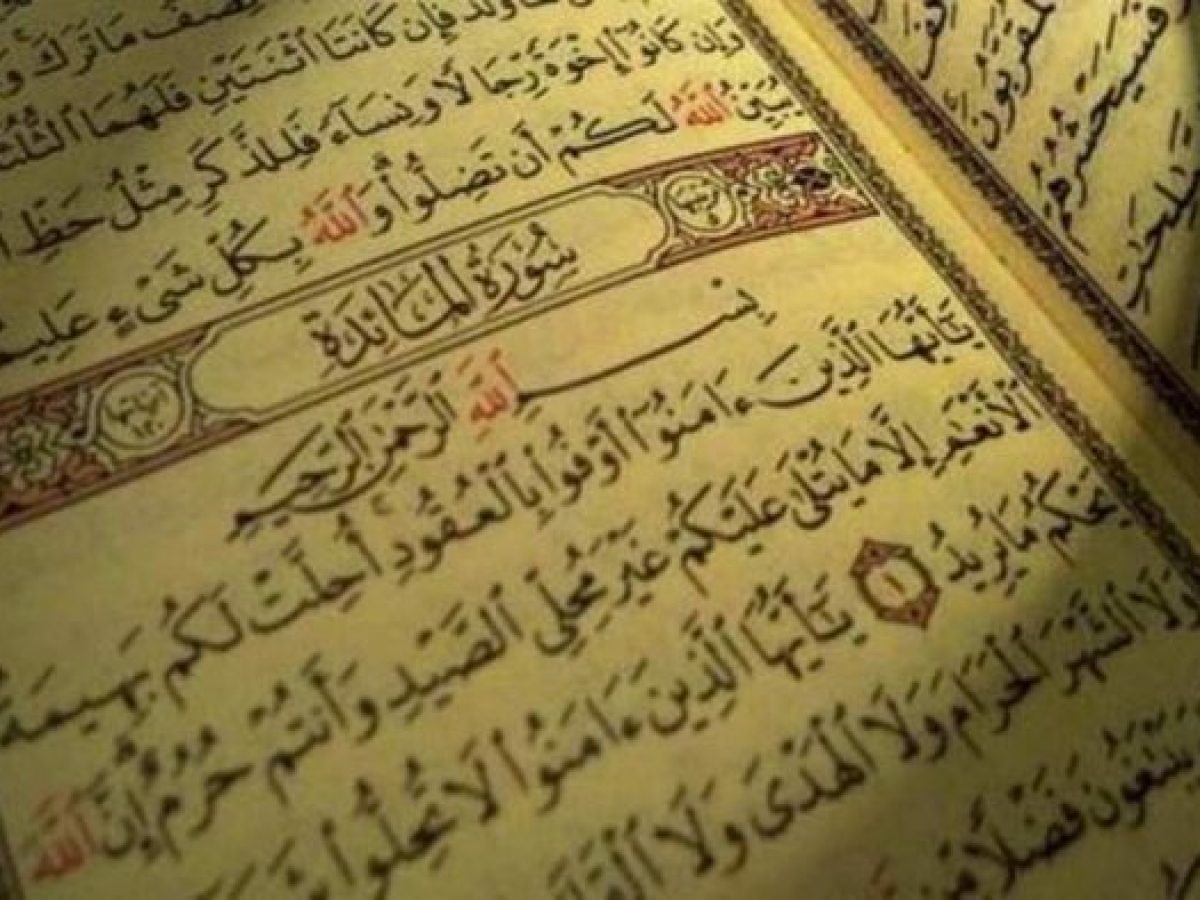 نِصْفُ مَا تَرَكَ
وَلَدٌ فَإِن كَانَتَا ٱثْنَتَيْنِ فَلَهُمَا
وَإِن كَانُوٓا۟ إِخْوَةً رِّجَالًا وَنِسَآءً فَلِلذَّكَرِ مِثْلُ حَظِّ
يُبَيِّنُ ٱللَّهُ لَكُمْ أَن تَضِلُّوا۟ وَٱللَّهُ بِكُلِّ شَىْءٍ عَلِيمٌۢ
سُورَةُ المَائِدَةِ
بِسْمِ ٱللَّهِ ٱلرَّحْمَٰنِ ٱلرَّحِيمِ
يَٰٓأَيُّهَا ٱلَّذِينَ ءَامَنُوٓا۟ أَوْفُوا۟ بِٱلْعُقُودِ أُحِلَّتْ لَكُم بَهِيمَةُ
ٱلْأَنْعَٰمِ إِلَّا مَا يُتْلَىٰ عَلَيْكُمْ غَيْرَ مُحِلِّى ٱلصَّيْدِ وَأَنتُمْ حُرُمٌ إِنَّ ٱللَّهَ
يَحْكُمُ مَا يُرِيدُ ١ يَٰٓأَيُّهَا ٱلَّذِينَ ءَامَنُوا۟ لَا تُحِلُّوا۟
وَلَا ٱلشَّهْرَ ٱلْحَرَامَ وَلَا ٱلْهَدْىَ وَلَا
يَبْتَغُونَ فَضْلًا مِّن
ٱلْمُقَرَّبُونَ
فَسَيَحْشُرُهُمْ